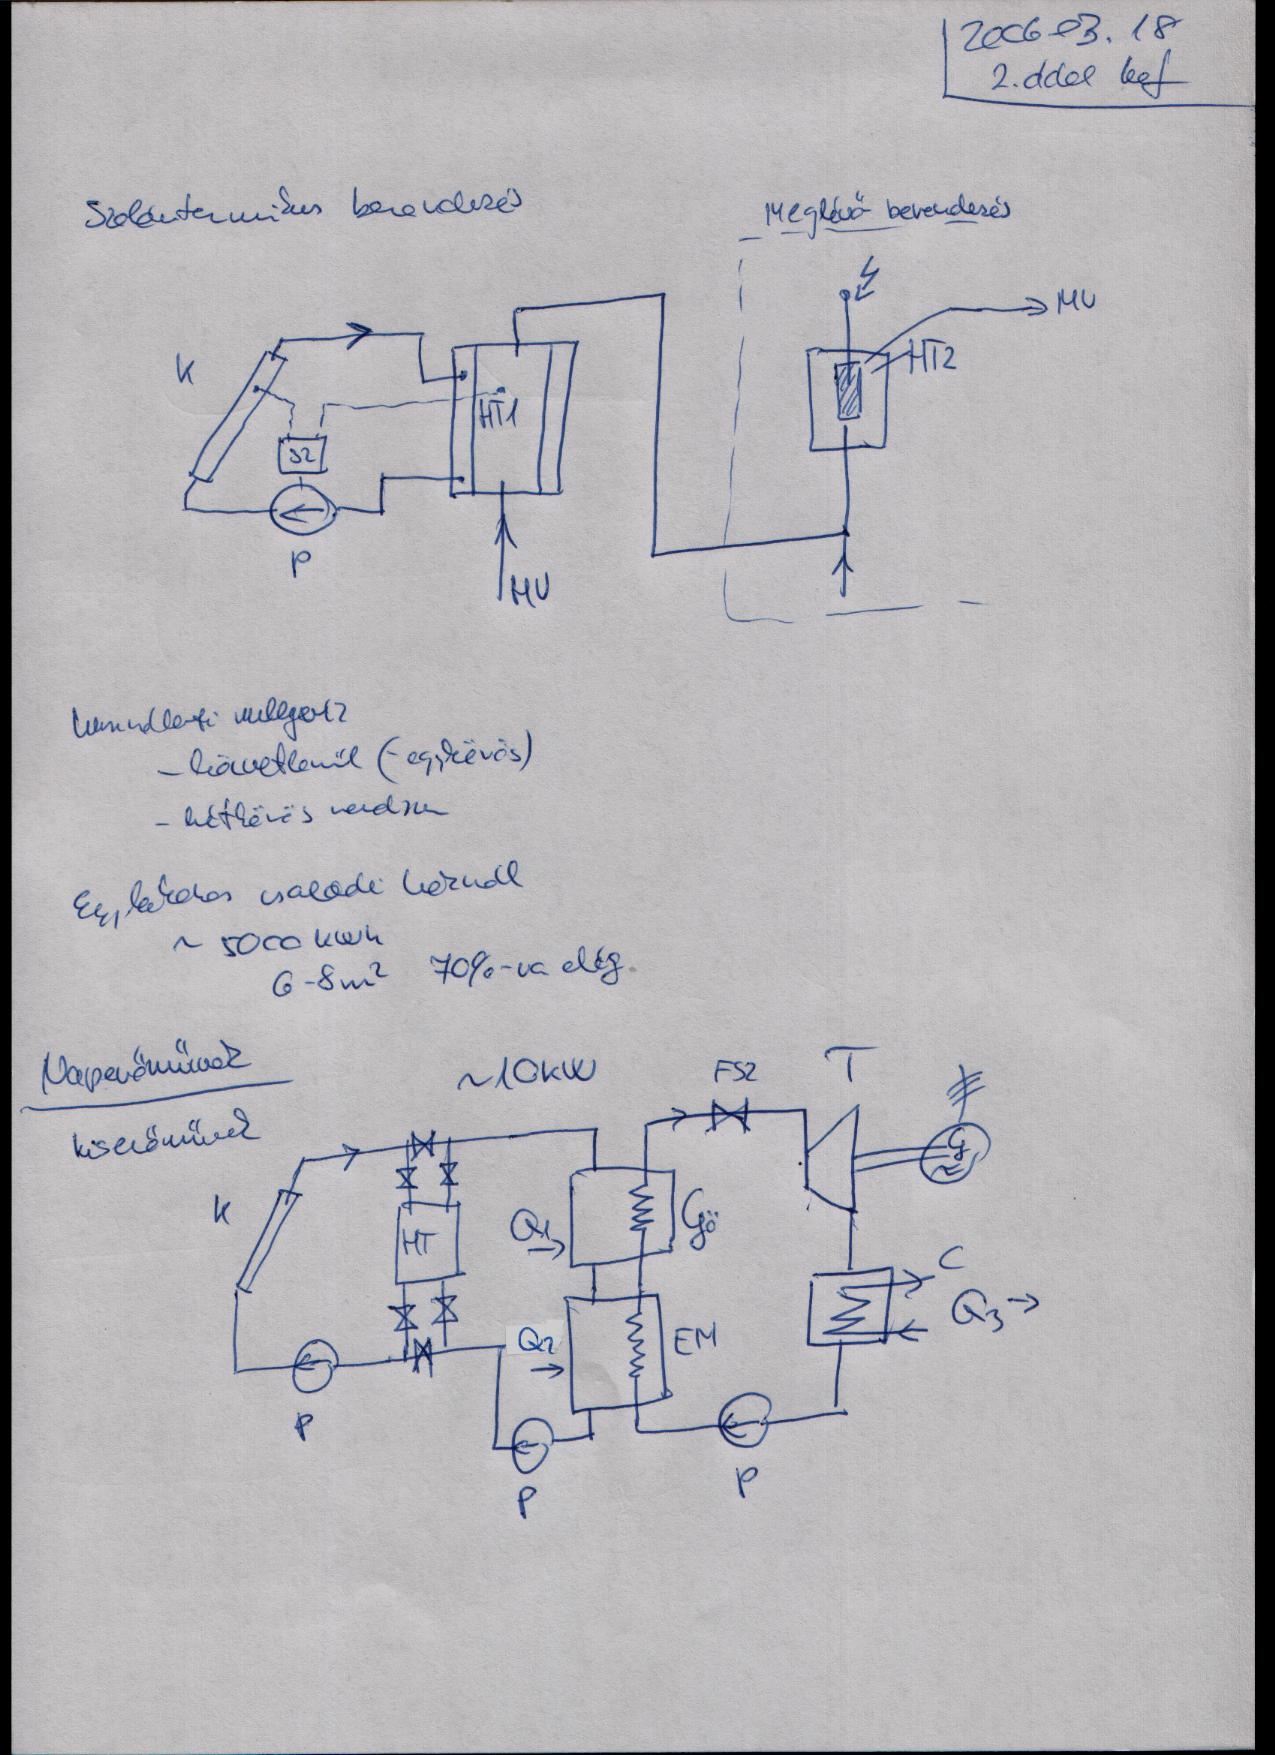 2006-03. 18
2. oldal kef
Szolártermikus berendezés
Meglévő berendezés
K
SZ
P
HT1
MV
HT2
MV
használati melegvíz
- közvetlenül (-egykörös)
- kétkörös rendszer
Egylakásos családi háznál
~ 5000 kWh
6-8m² 70%-ra elég.
Naperőművek
kiserőművek
~10kW
FSZ
T
G
~
K
HT
Q1
Gö
Q2
EM
C
Q3
P
P
P